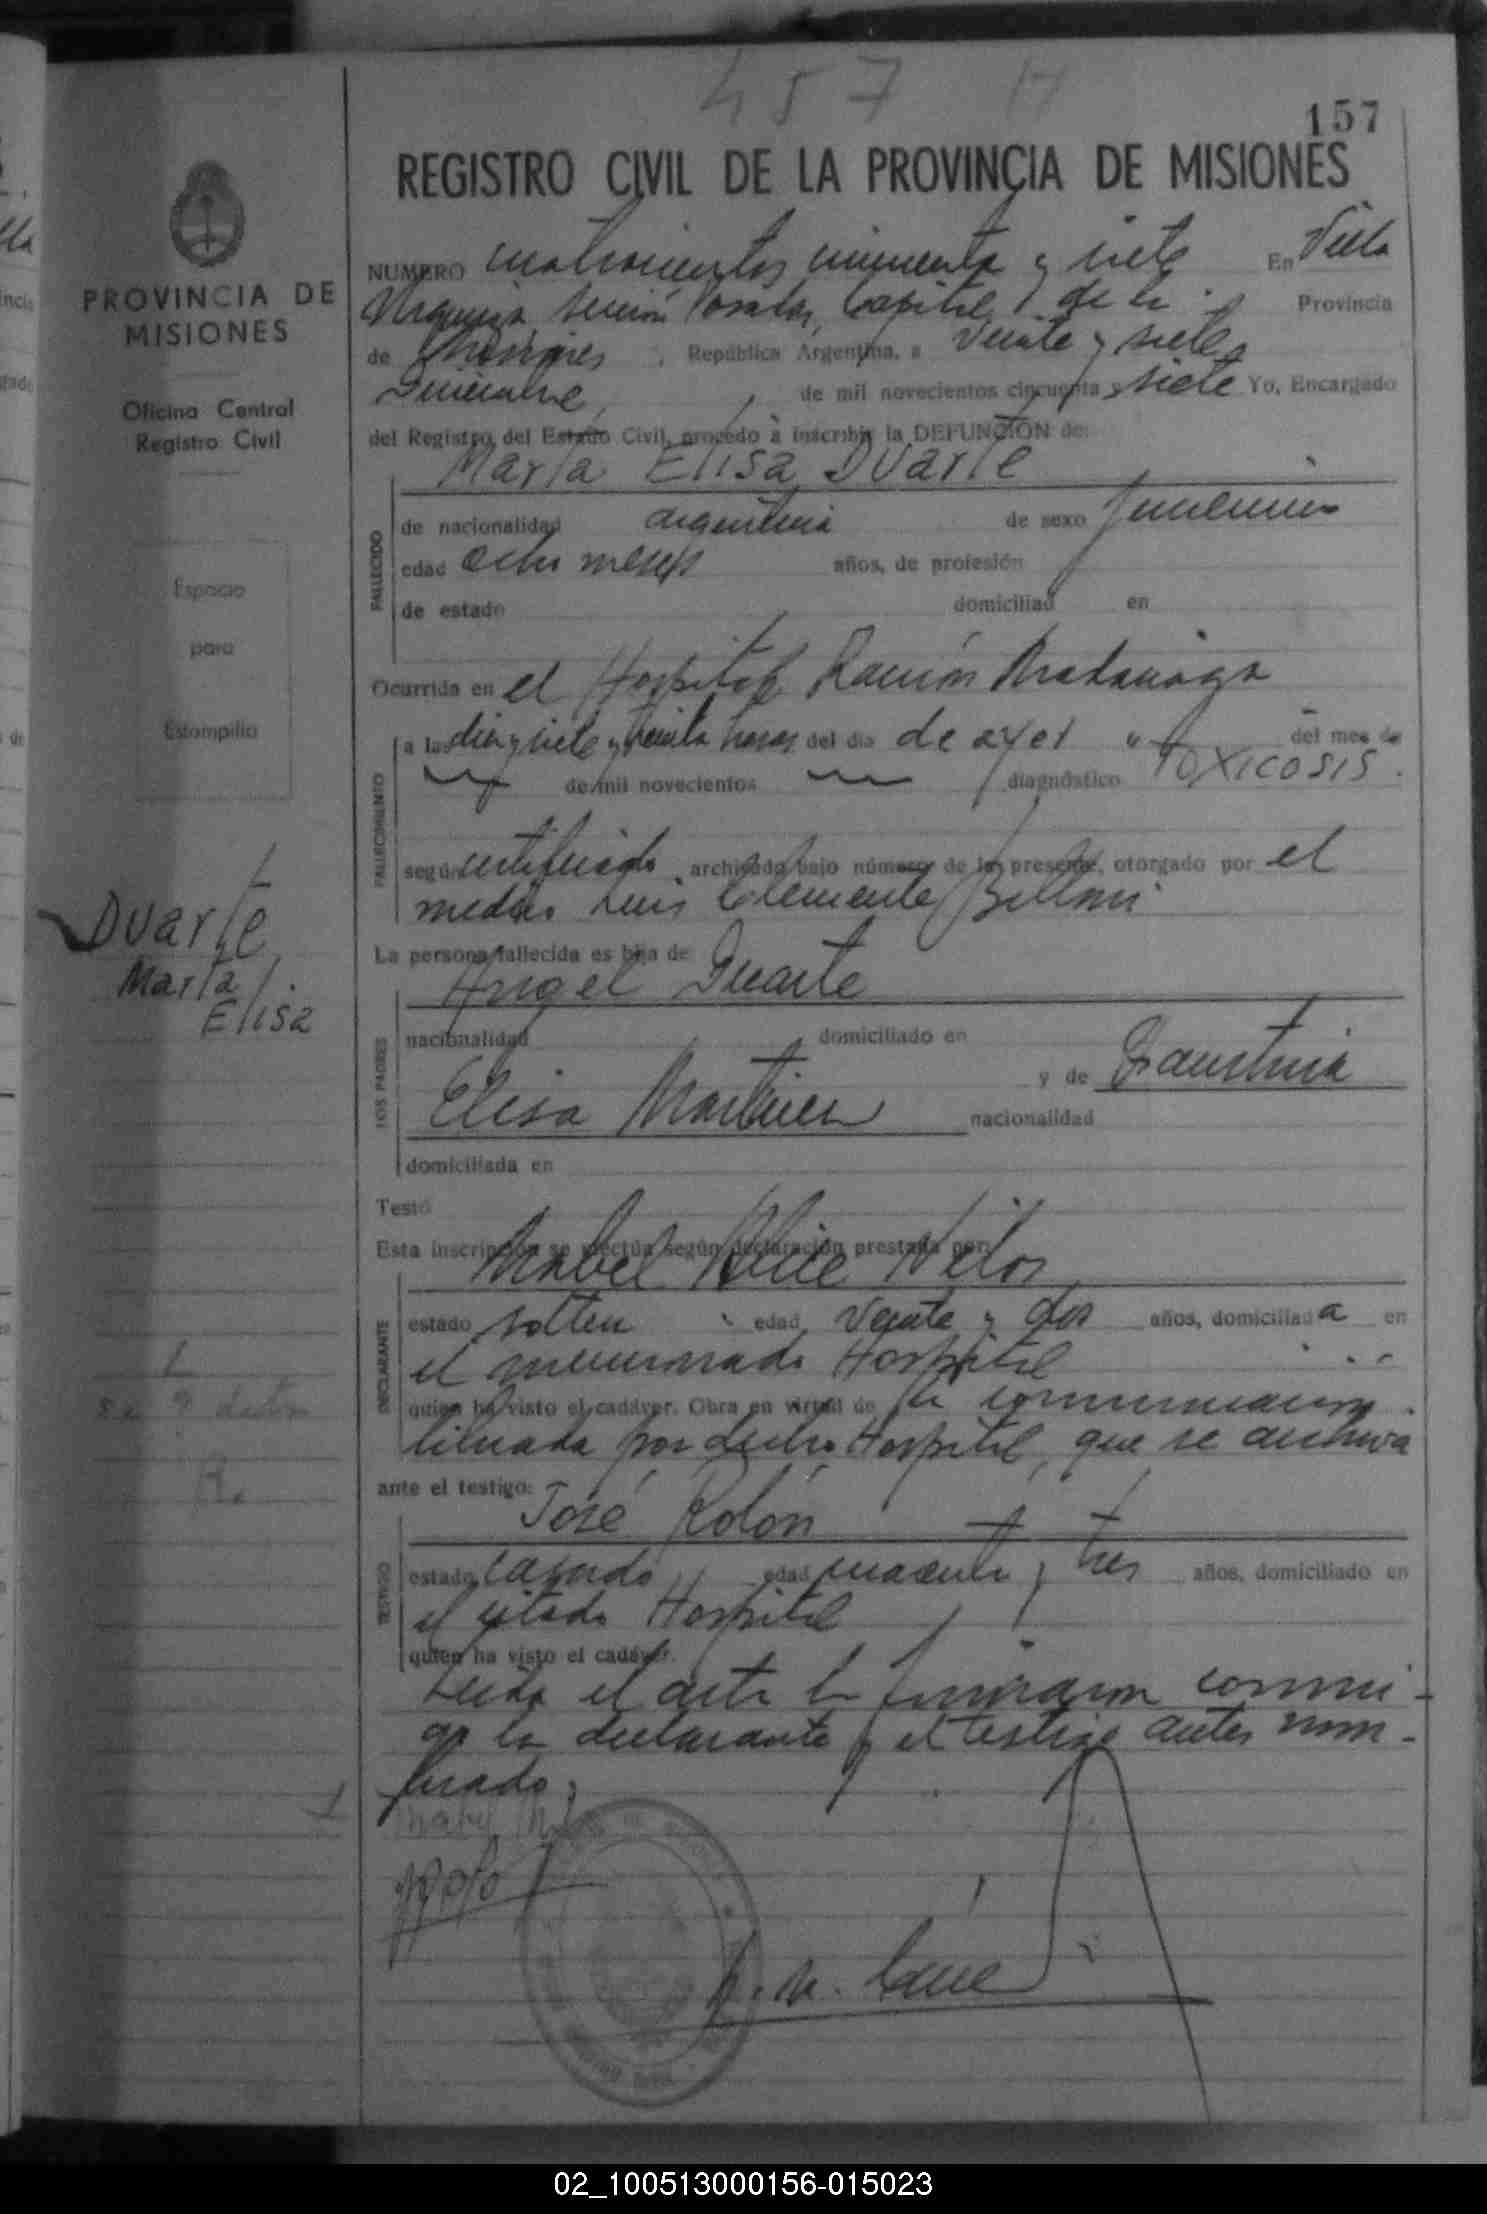 457
157
REGISTRO CIVIL DE LA PROVINCIA DE MISIONES
PROVINCIA DE
MISIONES
Oficina Central
Registro Civil
Espacio
para
Estampilla
Duarte
María
Elisa
NUMERO cuatrocientos cincuenta y siete En Villa
Urquiza, sección Posadas, Capital de la Provincia
de Misiones, República Argentina, a veinte y siete
Diciembre, de mil novecientos cincuenta y siete Yo, Encargado
del Registro del Estado Civil, procedo a inscribir la DEFUNCIÓN de:
María Elisa Duarte
FALLECIDO
de nacionalidad argentina de sexo femenino
edad ocho meses años, de profesión
de estado domiciliad en
Ocurrida en el Hospital Ramón Madariaga
FALLECIMIENTO
a las diez y siete y treinta horas del día de ayer del mes de
de mil novecientos diagnóstico TOXICOSIS.
según certificado archivado bajo número de la presente, otorgado por el
médico Luis Clemente Belloni
La persona fallecida es hija de
Angel Duarte
LOS PADRES
nacionalidad domiciliado en
y de Faustina
Elisa Martínez nacionalidad
domiciliada en
Testó
Esta inscripción se efectúa según declaración prestada por:
Mabel Alice
DECLARANTE
estado soltera edad veinte y dos años, domiciliada en
el mencionado Hospital
quien ha visto el cadáver. Obra en virtud de la comunicación
librada por dicho Hospital, que se archiva
ante el testigo:
José Rolón
TESTIGO
estado casado edad cuarenta y tres años, domiciliado en
el citado Hospital
quien ha visto el cadáver.
Leída el acta la firmaron conmi-
go la declarante y el testigo antes nom-
brado,
02_100513000156-015023